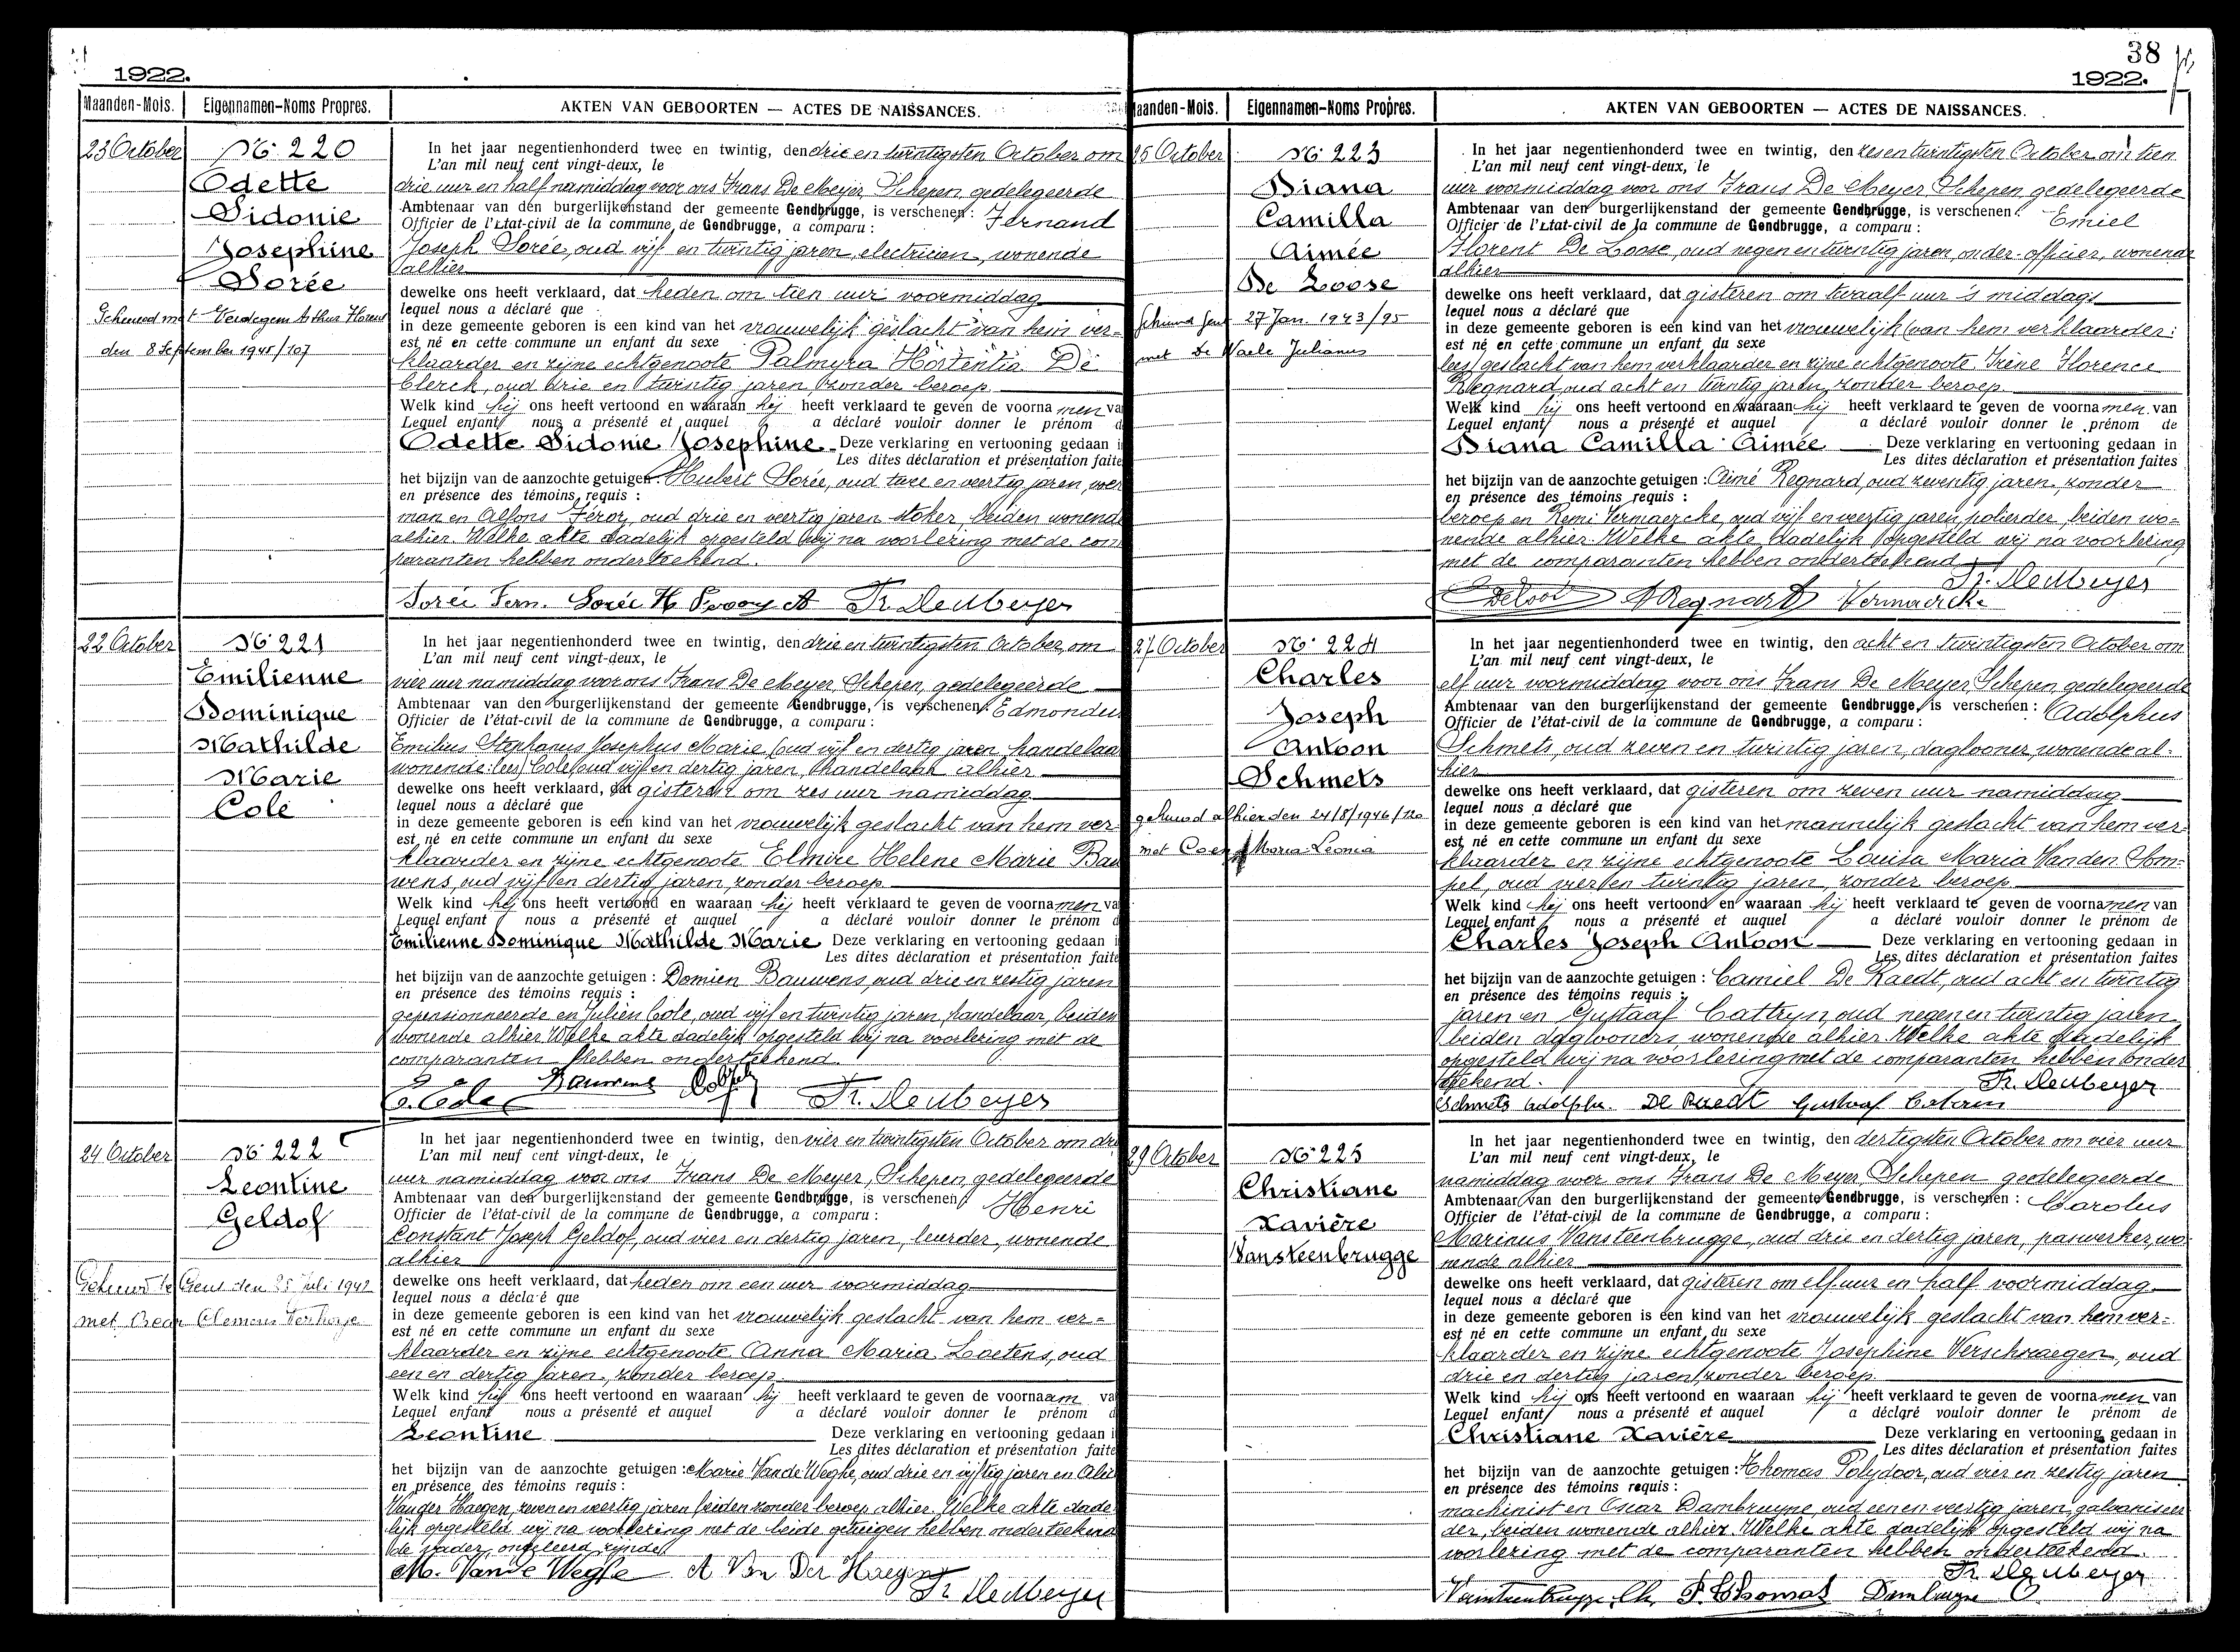 1922.
Maanden-Mois.
Eigennamen-Noms Propres.
AKTEN VAN GEBOORTEN — ACTES DE NAISSANCES.
23 October
No 220
Odette
Sidonie
Josephine
Sorée
Gehuwd met Verdegem Arthur
den 8 September 1945/107
In het jaar negentienhonderd twee en twintig, den drie en twintigsten October om
L'an mil neuf cent vingt-deux, le
drie uur en half namiddag voor ons Frans De Meyer, Schepen, gedelegeerde
Ambtenaar van den burgerlijkenstand der gemeente Gendbrugge, is verschenen: Fernand
Officier de l'Etat-civil de la commune de Gendbrugge, a comparu :
Joseph Sorée, oud vijf en twintig jaren, electricien, wonende
alhier
dewelke ons heeft verklaard, dat heden om tien uur voormiddag
lequel nous a déclaré que
in deze gemeente geboren is een kind van het vrouwelijk geslacht van hem ver=
est né en cette commune un enfant du sexe
klaarder en zijne echtgenoote Palmyra Hortentia De
Clerck, oud drie en twintig jaren, zonder beroep.
Welk kind hij ons heeft vertoond en waaraan hij heeft verklaard te geven de voornamen va
Lequel enfant nous a présenté et auquel a déclaré vouloir donner le prénom d
Odette Sidonie Josephine Deze verklaring en vertooning gedaan i
Les dites déclaration et présentation faite
het bijzijn van de aanzochte getuigen: Hubert Sorée, oud twee en veertig jaren, wer
en présence des témoins requis :
man en Alfons oud drie en veertig jaren stoker, beiden wonend
alhier. Welke akte dadelijk opgesteld wij na voorlezing met de com
paranten hebben onderteekend.
Sorée Fern. Sorée H A Fr. DeMeyer
22 October
No 221
Emilienne
Dominique
Mathilde
Marie
Cole
In het jaar negentienhonderd twee en twintig, den drie en twintigsten October, om
L'an mil neuf cent vingt-deux, le
vier uur namiddag voor ons Frans De Meyer, Schepen, gedelegeerde
Ambtenaar van den burgerlijkenstand der gemeente Gendbrugge, is verschenen: Edmondus
Officier de l'état-civil de la commune de Gendbrugge, a comparu :
Emilius Stephanus Josephus Marie (oud vijf en dertig jaren, handelaar
wonende: lees) Cole, oud vijf en dertig jaren, handelaar alhier
dewelke ons heeft verklaard, dat gisteren om zes uur namiddag
lequel nous a déclaré que
in deze gemeente geboren is een kind van het vrouwelijk geslacht van hem ver
est né en cette commune un enfant du sexe
klaarder en zijne echtgenoote Elmire Helene Marie Bau
wens, oud vijf en dertig jaren, zonder beroep
Welk kind hij ons heeft vertoond en waaraan hij heeft verklaard te geven de voornamen va
Lequel enfant nous a présenté et auquel a déclaré vouloir donner le prénom d
Emilienne Dominique Mathilde Marie Deze verklaring en vertooning gedaan i
Les dites déclaration et présentation faite
het bijzijn van de aanzochte getuigen : Domien Bauwens, oud drie en zestig jaren
en présence des témoins requis :
gepensionneerde en Julien Cole, oud vijf en twintig jaren, handelaar, beiden
wonende alhier. Welke akte dadelijk opgesteld wij na voorlezing met de
comparanten hebben onderteekend.
E. Cole Bauwens Fr. DeMeyer
24 October
No 222
Leontine
Geldof
Gehuwd te Gent den 25 Juli 1942
met Oscar Clemens
In het jaar negentienhonderd twee en twintig, den vier en twintigsten October om drie
L'an mil neuf cent vingt-deux, le
uur namiddag voor ons Frans De Meyer, Schepen, gedelegeerde
Ambtenaar van den burgerlijkenstand der gemeente Gendbrugge, is verschenen: Henri
Officier de l'état-civil de la commune de Gendbrugge, a comparu :
Constant Joseph Geldof, oud vier en dertig jaren, leurder, wonende
alhier
dewelke ons heeft verklaard, dat heden om een uur voormiddag
lequel nous a déclaré que
in deze gemeente geboren is een kind van het vrouwelijk geslacht van hem ver=
est né en cette commune un enfant du sexe
klaarder en zijne echtgenoote Anna Maria Laetens, oud
een en dertig jaren, zonder beroep.
Welk kind hij ons heeft vertoond en waaraan hij heeft verklaard te geven de voornaam va
Lequel enfant nous a présenté et auquel a déclaré vouloir donner le prénom d
Leontine Deze verklaring en vertooning gedaan i
Les dites déclaration et présentation faite
het bijzijn van de aanzochte getuigen : Marie Vande Weghe, oud drie en vijftig jaren en
en présence des témoins requis :
Vander Haegen, zeven en veertig jaren, beiden zonder beroep alhier. Welke akte dade
lijk opgesteld wij na voorlezing met de beide getuigen hebben onderteekend
de vader ongeleerd zijnde.
M. Vande Weghe A Van Der Haegen Fr. DeMeyer
38
1922.
Maanden-Mois.
Eigennamen-Noms Propres.
AKTEN VAN GEBOORTEN — ACTES DE NAISSANCES.
25 October
No 223
Diana
Camilla
Aimée
De Loose
Gehuwd Gent 27 Jan. 1943/95
met De Waele Julianus
In het jaar negentienhonderd twee en twintig, den zes en twintigsten October om tien
L'an mil neuf cent vingt-deux, le
uur voormiddag voor ons Frans De Meyer, Schepen, gedelegeerde
Ambtenaar van den burgerlijkenstand der gemeente Gendbrugge, is verschenen: Emiel
Officier de l'Etat-civil de la commune de Gendbrugge, a comparu :
Florent De Loose, oud negen en twintig jaren, onder-officier, wonende
alhier
dewelke ons heeft verklaard, dat gisteren om twaalf uur 's middags
lequel nous a déclaré que
in deze gemeente geboren is een kind van het vrouwelijk (van hem verklaarder:
est né en cette commune un enfant du sexe
lees) geslacht van hem verklaarder en zijne echtgenoote Irène Florence
Regnard, oud acht en twintig jaren, zonder beroep.
Welk kind hij ons heeft vertoond en waaraan hij heeft verklaard te geven de voornamen van
Lequel enfant nous a présenté et auquel a déclaré vouloir donner le prénom de
Diana Camilla Aimée Deze verklaring en vertooning gedaan in
Les dites déclaration et présentation faites
het bijzijn van de aanzochte getuigen : Aimé Regnard, oud zeventig jaren, zonder
en présence des témoins requis :
beroep en Remi Vermaercke, oud vijf en veertig jaren, polierder, beiden wo=
nende alhier. Welke akte dadelijk opgesteld wij na voorlezing
met de comparanten hebben onderteekend
Fr. DeMeyer
A Regnard Vermaercke
27 October
No 224
Charles
Joseph
Antoon
Schmets
gehuwd alhier den 24/8/1946/120
met Maria-Leonia
In het jaar negentienhonderd twee en twintig, den acht en twintigsten October om
L'an mil neuf cent vingt-deux, le
elf uur voormiddag voor ons Frans De Meyer, Schepen, gedelegeerde
Ambtenaar van den burgerlijkenstand der gemeente Gendbrugge, is verschenen : Adolphus
Officier de l'état-civil de la commune de Gendbrugge, a comparu :
Schmets, oud zeven en twintig jaren, daglooner, wonende al=
hier
dewelke ons heeft verklaard, dat gisteren om zeven uur namiddag
lequel nous a déclaré que
in deze gemeente geboren is een kind van het mannelijk geslacht van hem ver
est né en cette commune un enfant du sexe
klaarder en zijne echtgenoote Louisa Maria Vanden Som=
pel, oud vier en twintig jaren, zonder beroep.
Welk kind hij ons heeft vertoond en waaraan hij heeft verklaard te geven de voornamen van
Lequel enfant nous a présenté et auquel a déclaré vouloir donner le prénom de
Charles Joseph Antoon Deze verklaring en vertooning gedaan in
Les dites déclaration et présentation faites
het bijzijn van de aanzochte getuigen : Camiel De Raedt, oud acht en twintig
en présence des témoins requis :
jaren en Gustaaf Cattryn, oud negen en twintig jaren
beiden daglooners, wonende alhier. Welke akte dadelijk
opgesteld wij na voorlezing met de comparanten hebben onder
teekend.
Fr. DeMeyer
Schmets Adolphe. De Raedt Gustaaf
29 October
No 225
Christiane
Xavière
Vansteenbrugge
In het jaar negentienhonderd twee en twintig, den dertigsten October om vier uur
L'an mil neuf cent vingt-deux, le
namiddag voor ons Frans De Meyer, Schepen gedelegeerde
Ambtenaar van den burgerlijkenstand der gemeente Gendbrugge, is verschenen : Carolus
Officier de l'état-civil de la commune de Gendbrugge, a comparu :
Marinus Vansteenbrugge, oud drie en dertig jaren, paswerker, wo
nende alhier
dewelke ons heeft verklaard, dat gisteren om elf uur en half voormiddag
lequel nous a déclaré que
in deze gemeente geboren is een kind van het vrouwelijk geslacht van hem ver=
est né en cette commune un enfant du sexe
klaarder en zijne echtgenoote Joséphine Verschraegen, oud
drie en dertig jaren, zonder beroep.
Welk kind hij ons heeft vertoond en waaraan hij heeft verklaard te geven de voornamen van
Lequel enfant nous a présenté et auquel a déclaré vouloir donner le prénom de
Christiane Xavière Deze verklaring en vertooning gedaan in
Les dites déclaration et présentation faites
het bijzijn van de aanzochte getuigen : Thomas Polydoor, oud vier en zestig jaren
en présence des témoins requis :
machinist en Oscar Dambruyne, oud een en veertig jaren, galvaniseer
der, beiden wonende alhier. Welke akte dadelijk opgesteld wij na
voorlezing met de comparanten hebben onderteekend.
Fr. DeMeyer
Vansteenbrugge Ch. P. Thomas Dambruyne O.